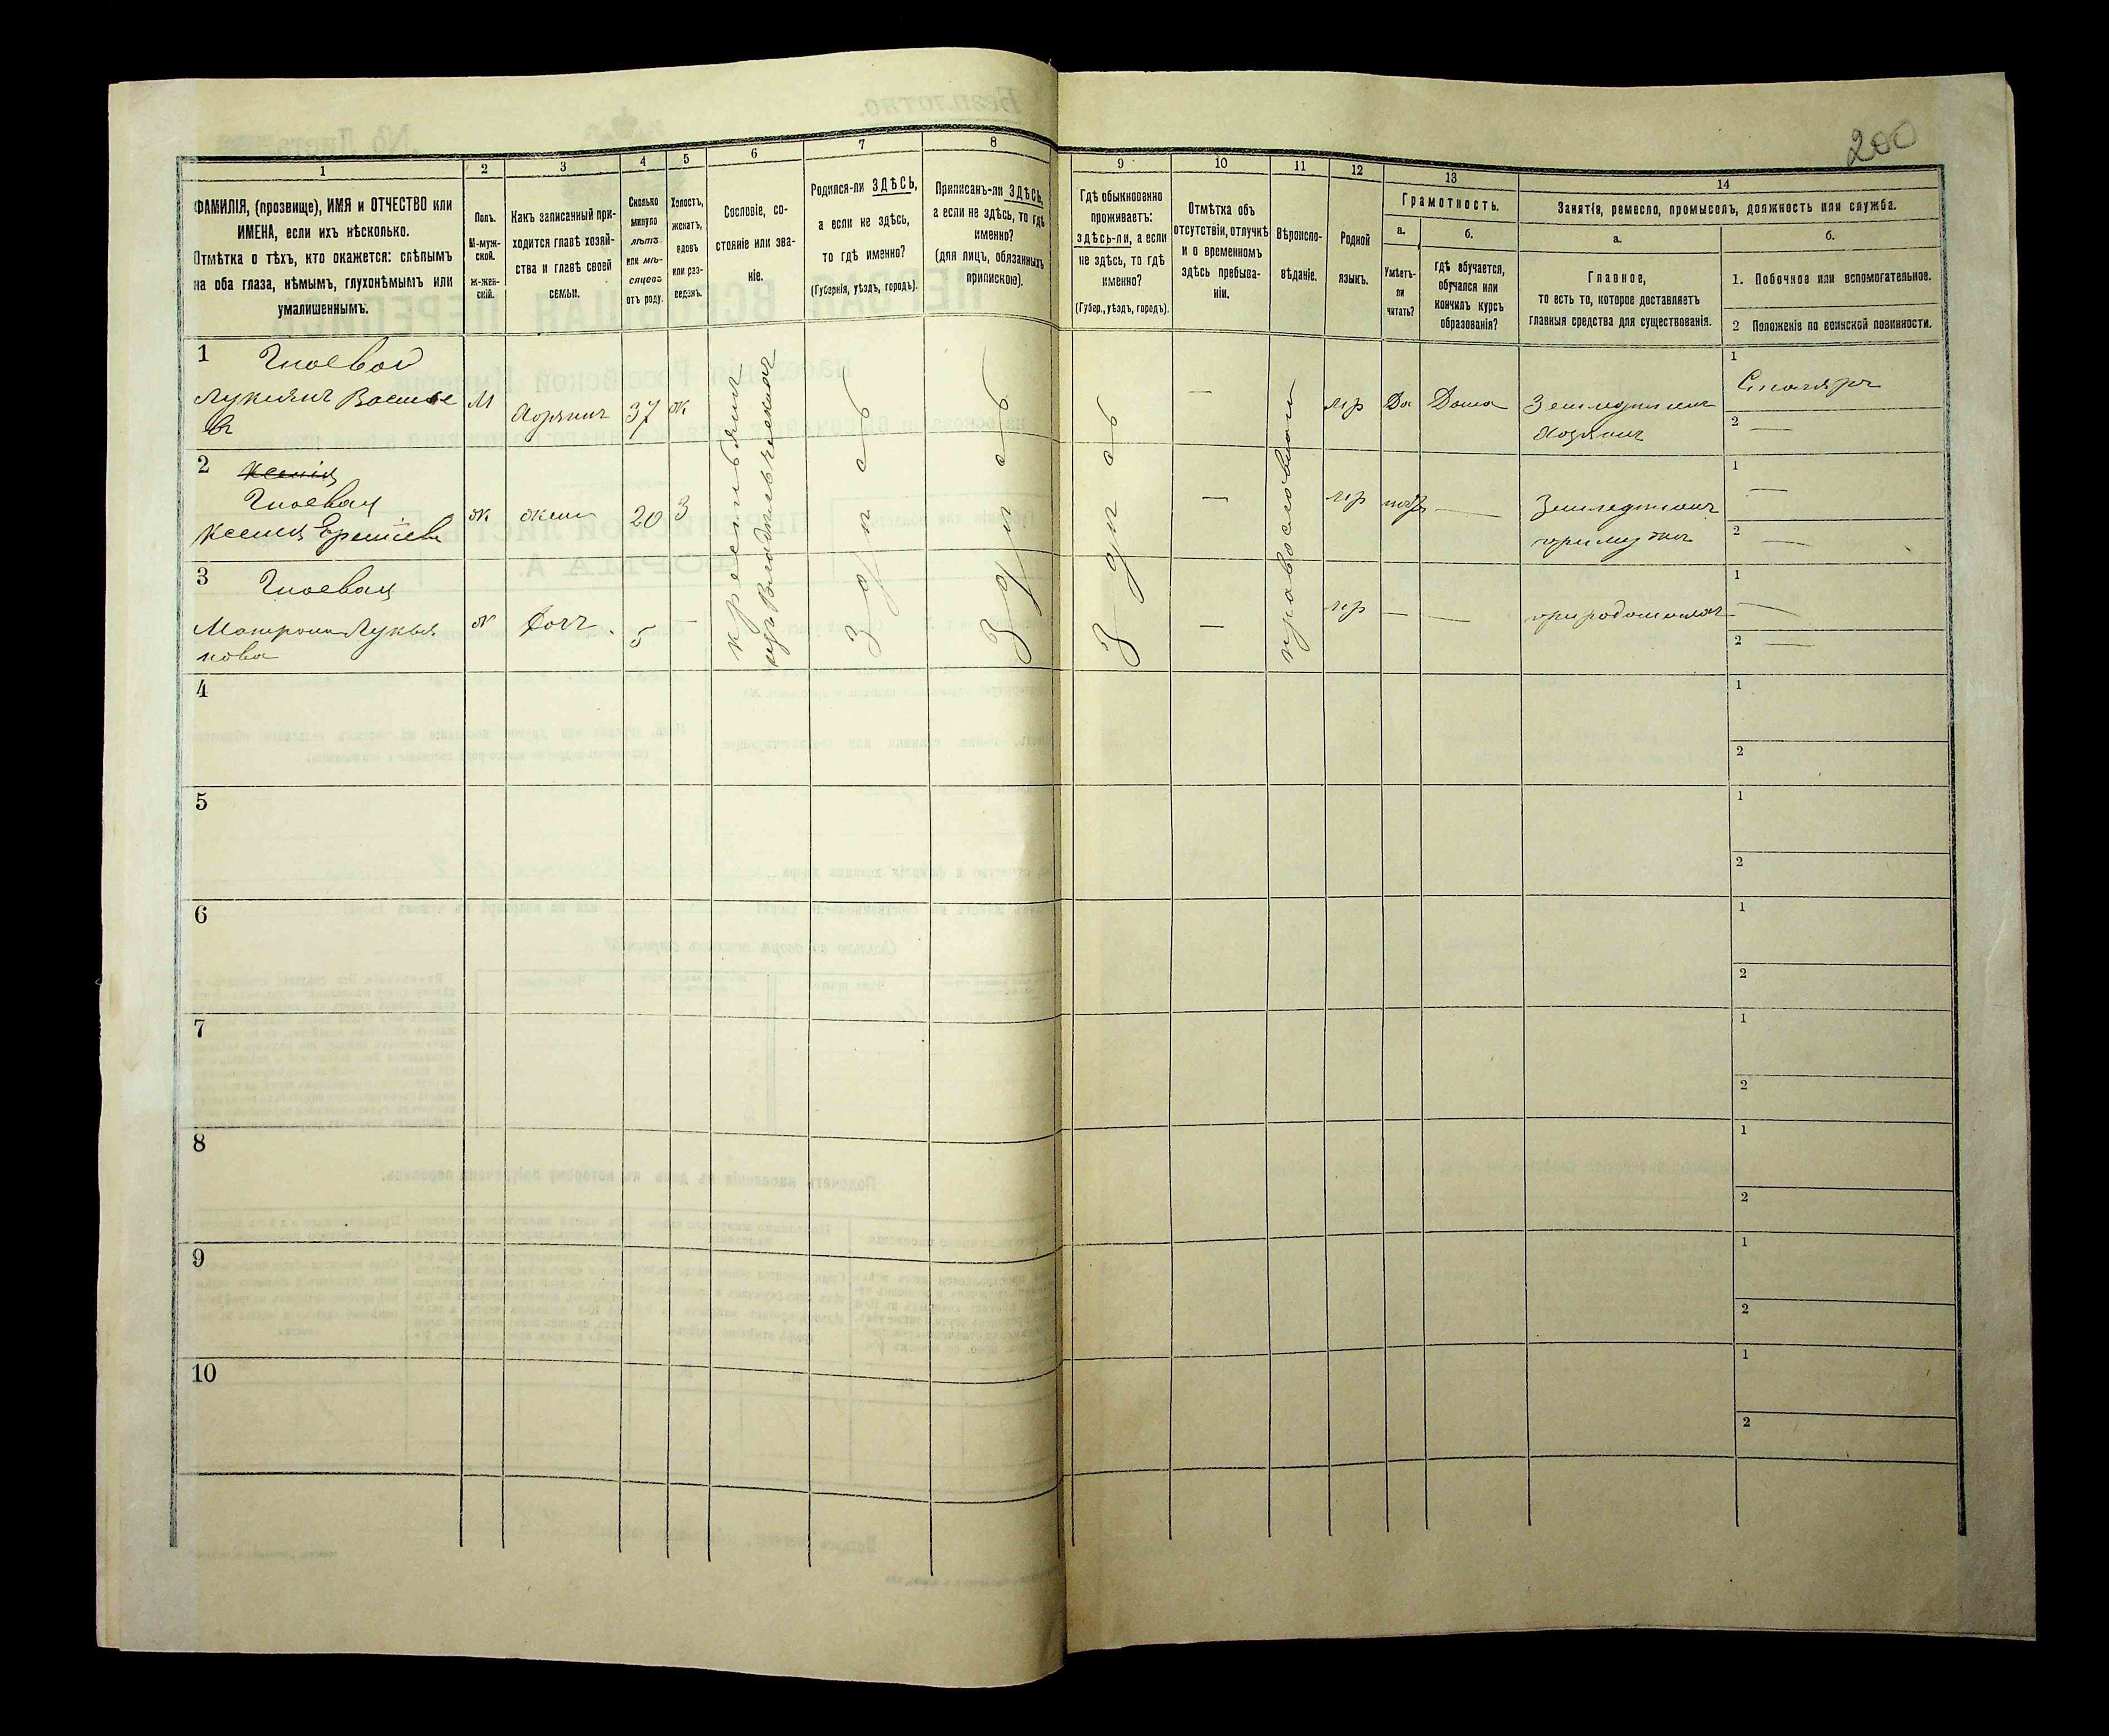 200
1
2
3
4
5
6
7
8
9
10
11
12
13
14
ФАМИЛІЯ, (прозвище), ИМЯ и ОТЧЕСТВО или
ИМЕНА, если ихъ нѣсколько.
Отмѣтка о тѣхъ, кто окажется: слѣпымъ
на оба глаза, нѣмымъ, глухонѣмымъ или
умалишеннымъ.
Полъ.
М-муж-
ской.
ж-жен-
скій.
Какъ записанный при-
ходится главѣ хозяй-
ства и главѣ своей
семьи.
Сколько
минуло
лѣтъ
или мѣ-
сяцевъ
отъ роду.
Холостъ,
женатъ,
вдовъ
или раз-
веденъ.
Сословіе, со-
стояніе или зва-
ніе.
Родился-ли ЗДѢСЬ,
а если не здѣсь,
то гдѣ именно?
(Губернія, уѣздъ, городъ).
Приписанъ-ли ЗДѢСЬ,
а если не здѣсь, то гдѣ
именно?
(для лицъ, обязанныхъ
припискою).
Гдѣ обыкновенно
проживаетъ:
здѣсь-ли, а если
не здѣсь, то гдѣ
именно?
(Губер., уѣздъ, городъ).
Отмѣтка объ
отсутствіи, отлучкѣ
и о временномъ
здѣсь пребыва-
ніи.
Вѣроиспо-
вѣданіе.
Родной
языкъ.
Грамотность.
а.
Умѣетъ-
ли
читать?
б.
гдѣ обучается,
обучался или
кончилъ курсъ
образованія?
Занятіе, ремесло, промыселъ, должность или служба.
а.
Главное,
то есть то, которое доставляетъ
главныя средства для существованія.
б.
1. Побочное или вспомогательное.
2 Положеніе по воинской повинности.
1 Гноевой
Лукьянъ Василье
въ
М
Хозяинъ
37
ж
крестьянинъ
здѣсь
здѣсь
здѣсь
—
православное
мр
Да
Дома
Земледѣлецъ
Хозяинъ
1
Столяръ
2 —
2 Ксенія
Гноевая
Ксенія
ж
жена
20
З
—
мр
—
1 —
2 —
3 Гноевая
Матрона Лукья
нова
ж
Дочь
5
—
—
мр
—
—
1 —
2 —
4
1
2
5
1
2
6
1
2
7
1
2
8
1
2
9
1
2
10
1
2